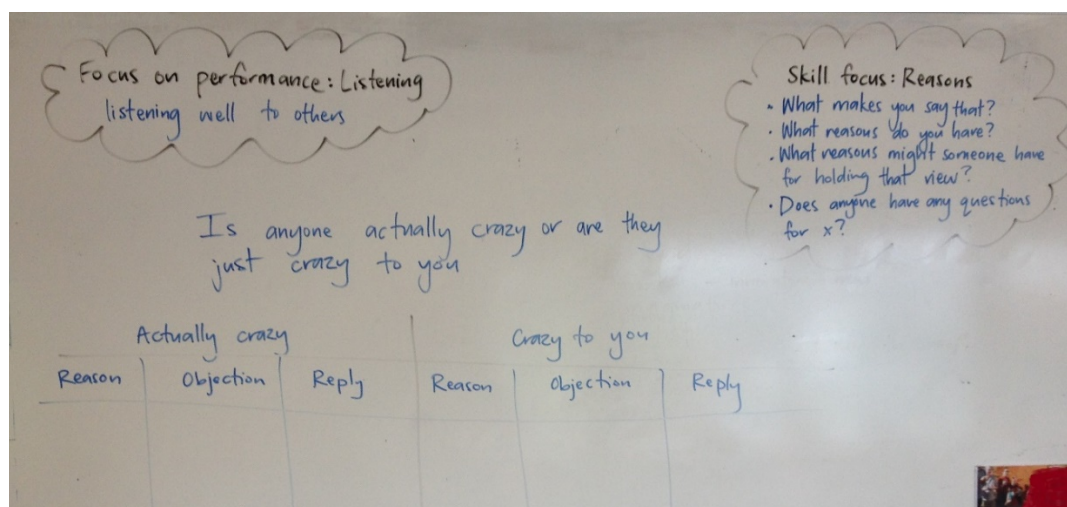 Focus on performance: Listening
listening well to others
Skill focus: Reasons
• What makes you say that?
• What reasons do you have?
• What reasons might someone have
for holding that view?
• Does anyone have any questions
for x?
Is anyone actually crazy or are they
just crazy to you
Actually crazy
Crazy to you
Reason Objection Reply Reason Objection Reply